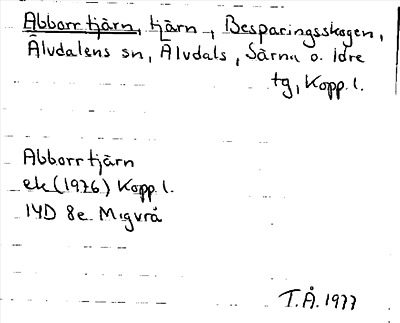 Abborrtjärn, tjärn, Besparingsskogen,
Älvdalens sn, Älvdals, Särna o. Idre
tg, Kopp. l.
Abborrtjärn
ek (1976) Kopp l.
14D 8e
T.Å. 1977